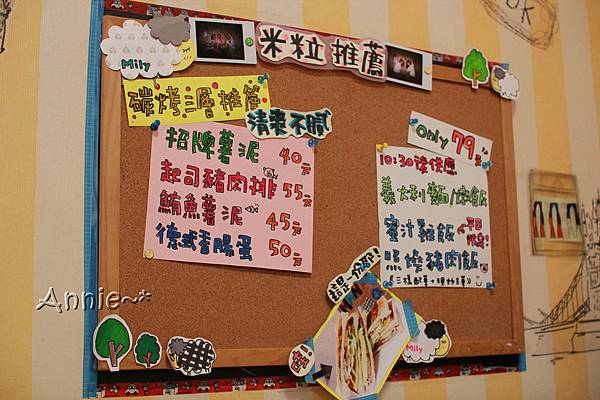 Mily
米粒推薦
碳烤三層推薦
清爽不膩
招牌薯泥 40元
起司豬肉排 55元
鮪魚薯泥 45元
德式香腸蛋 50元
Only 79元
10:30後供應
義大利麵/燉飯
蜜汁雞飯
照燒豬肉飯
Annie~*
Mily
OK